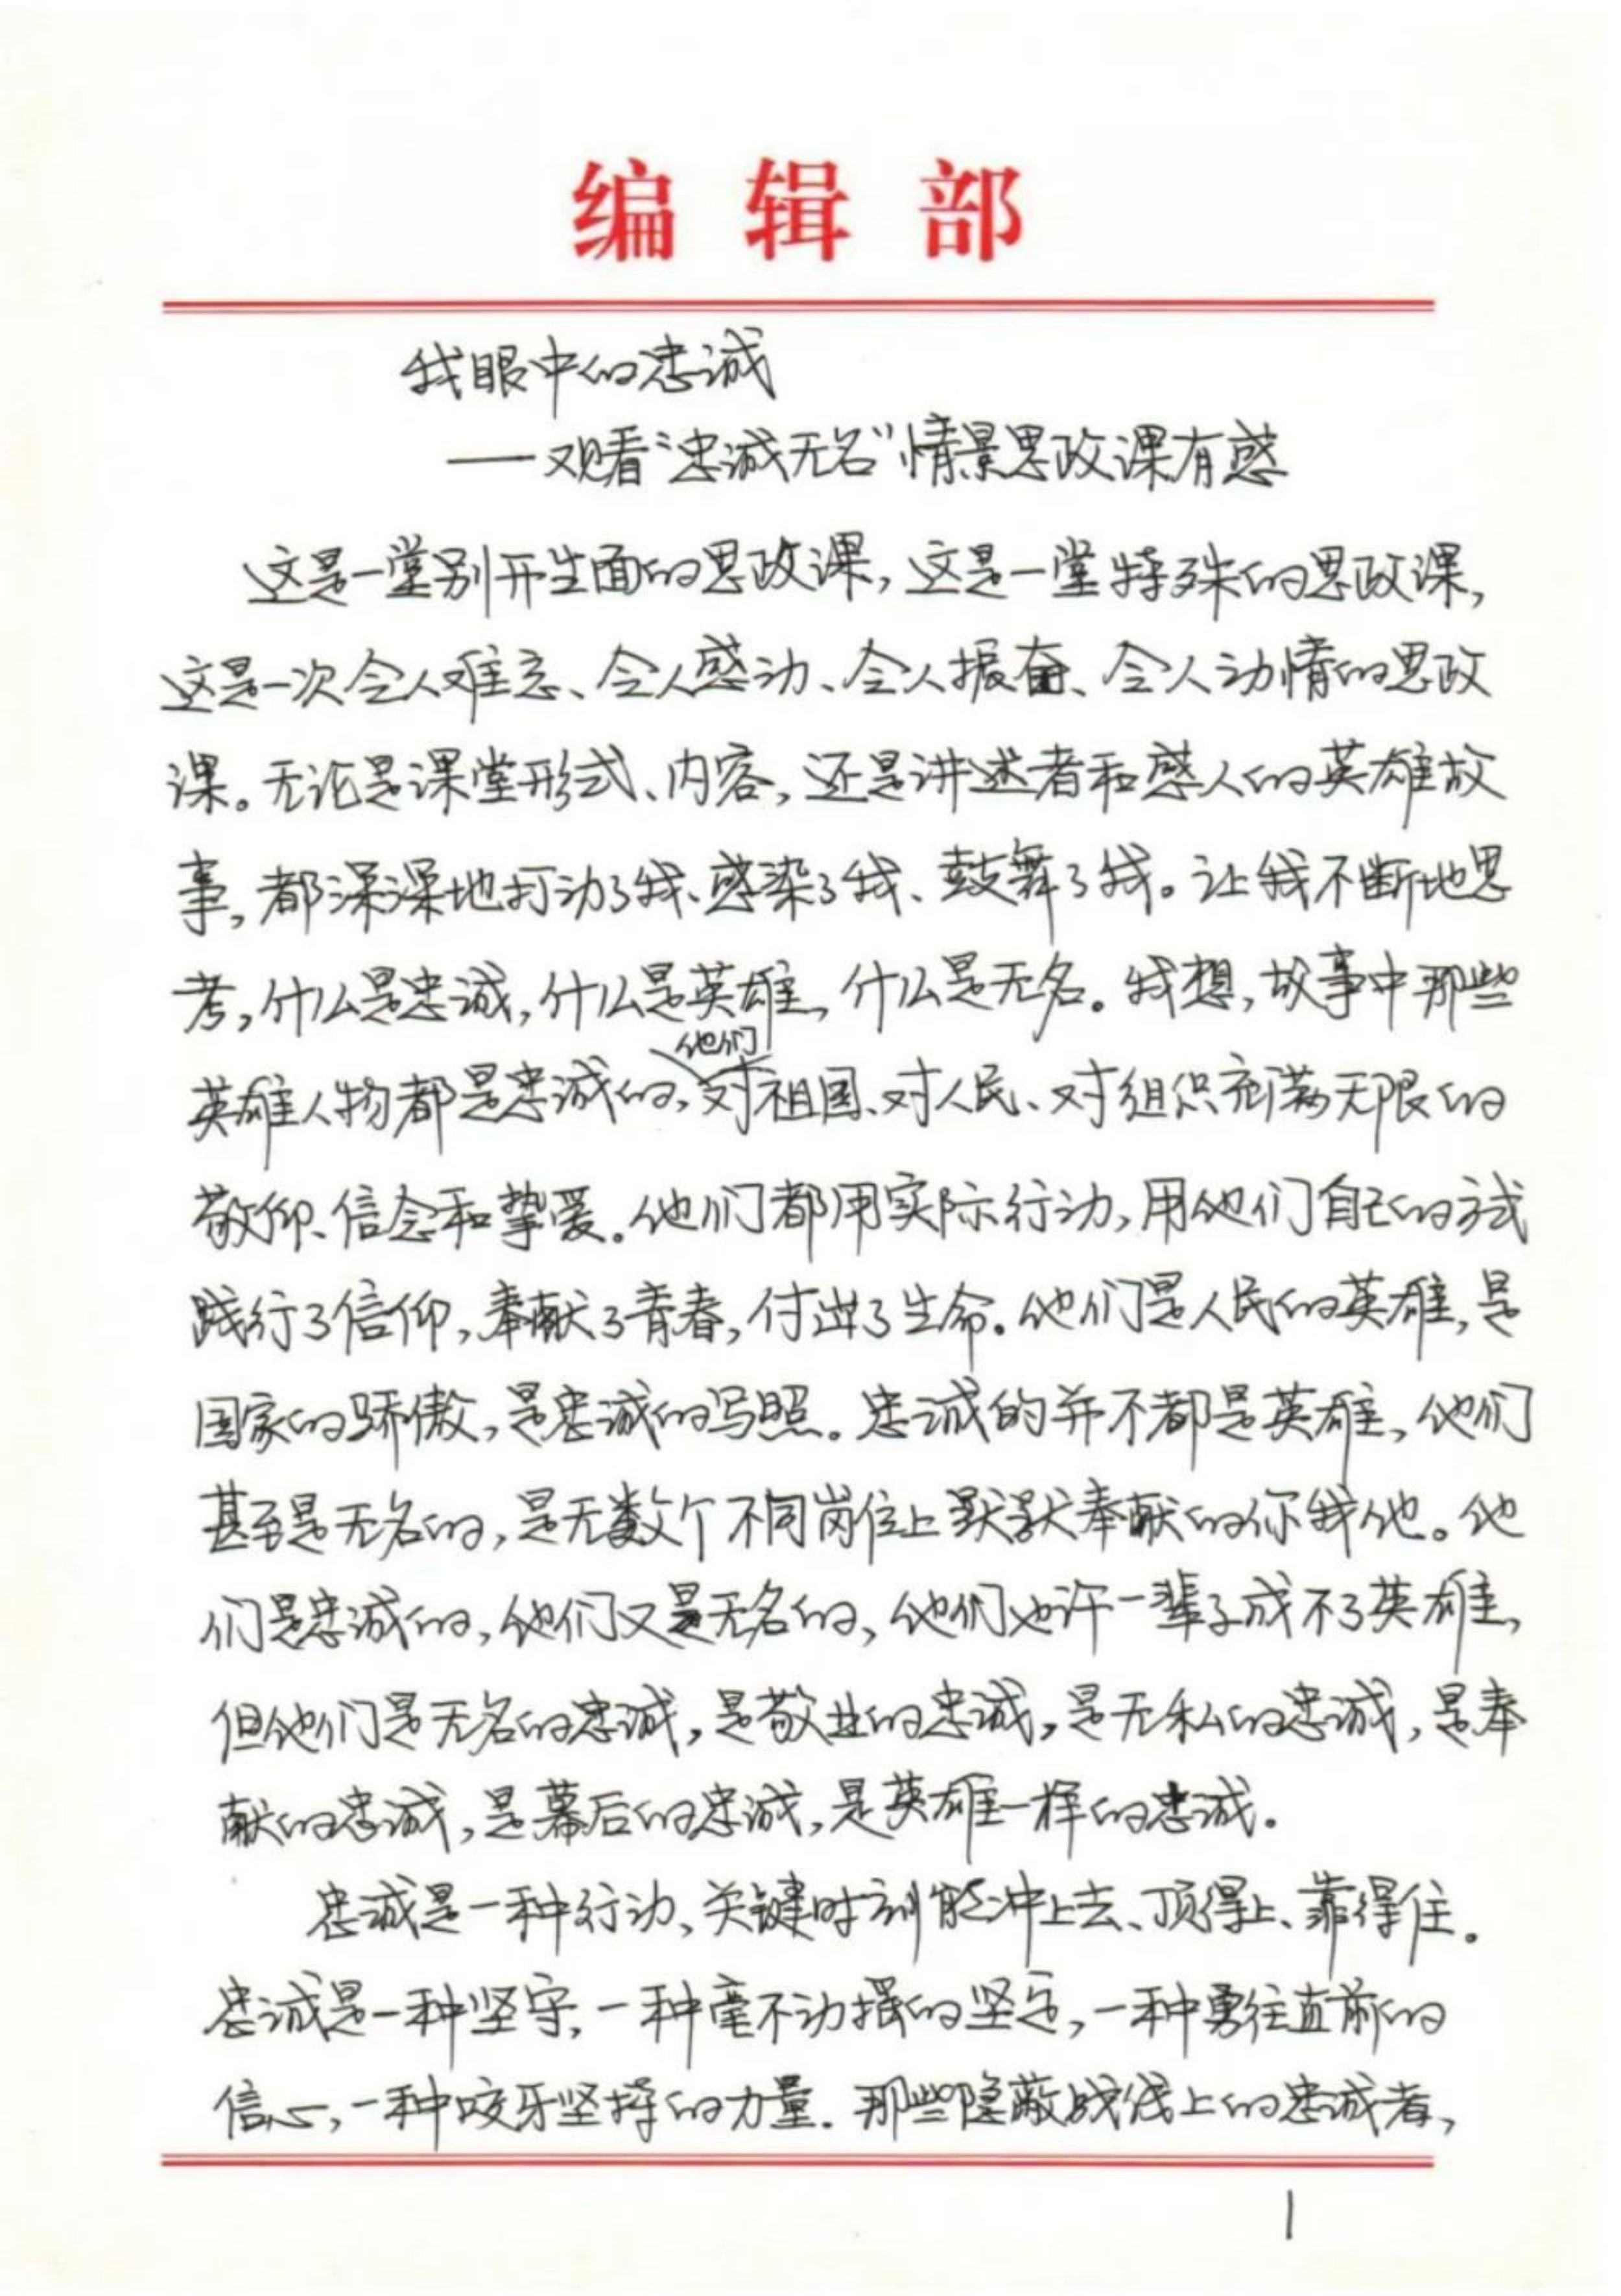 编辑部
我眼中的忠诚
——观看“忠诚无名”情景思政课有感
这是一堂别开生面的思政课，这是一堂特殊的思政课，
这是一次令人难忘、令人感动、令人振奋、令人动情的思政
课。无论是课堂形式、内容，还是讲述者和感人的英雄故
事，都深深地打动了我、感染了我、鼓舞了我。让我不断地思
考，什么是忠诚，什么是英雄，什么是无名。我想，故事中那些
他们
英雄人物都是忠诚的，对祖国、对人民、对组织充满无限的
敬仰、信念和挚爱。他们都用实际行动，用他们自己的方式
践行了信仰，奉献了青春，付出了生命。他们是人民的英雄，是
国家的骄傲，是忠诚的写照。忠诚的并不都是英雄，他们
甚至是无名的，是无数个不同岗位上默默奉献的你我他。他
们是忠诚的，他们又是无名的，他们也许一辈子成不了英雄，
但他们是无名的忠诚，是敬业的忠诚，是无私的忠诚，是奉
献的忠诚，是幕后的忠诚，是英雄一样的忠诚。
忠诚是一种行动，关键时刻能冲上去、顶得上、靠得住。
忠诚是一种坚守，一种毫不动摇的坚定，一种勇往直前的
信心，一种咬牙坚持的力量。那些隐蔽战线上的忠诚者，
1